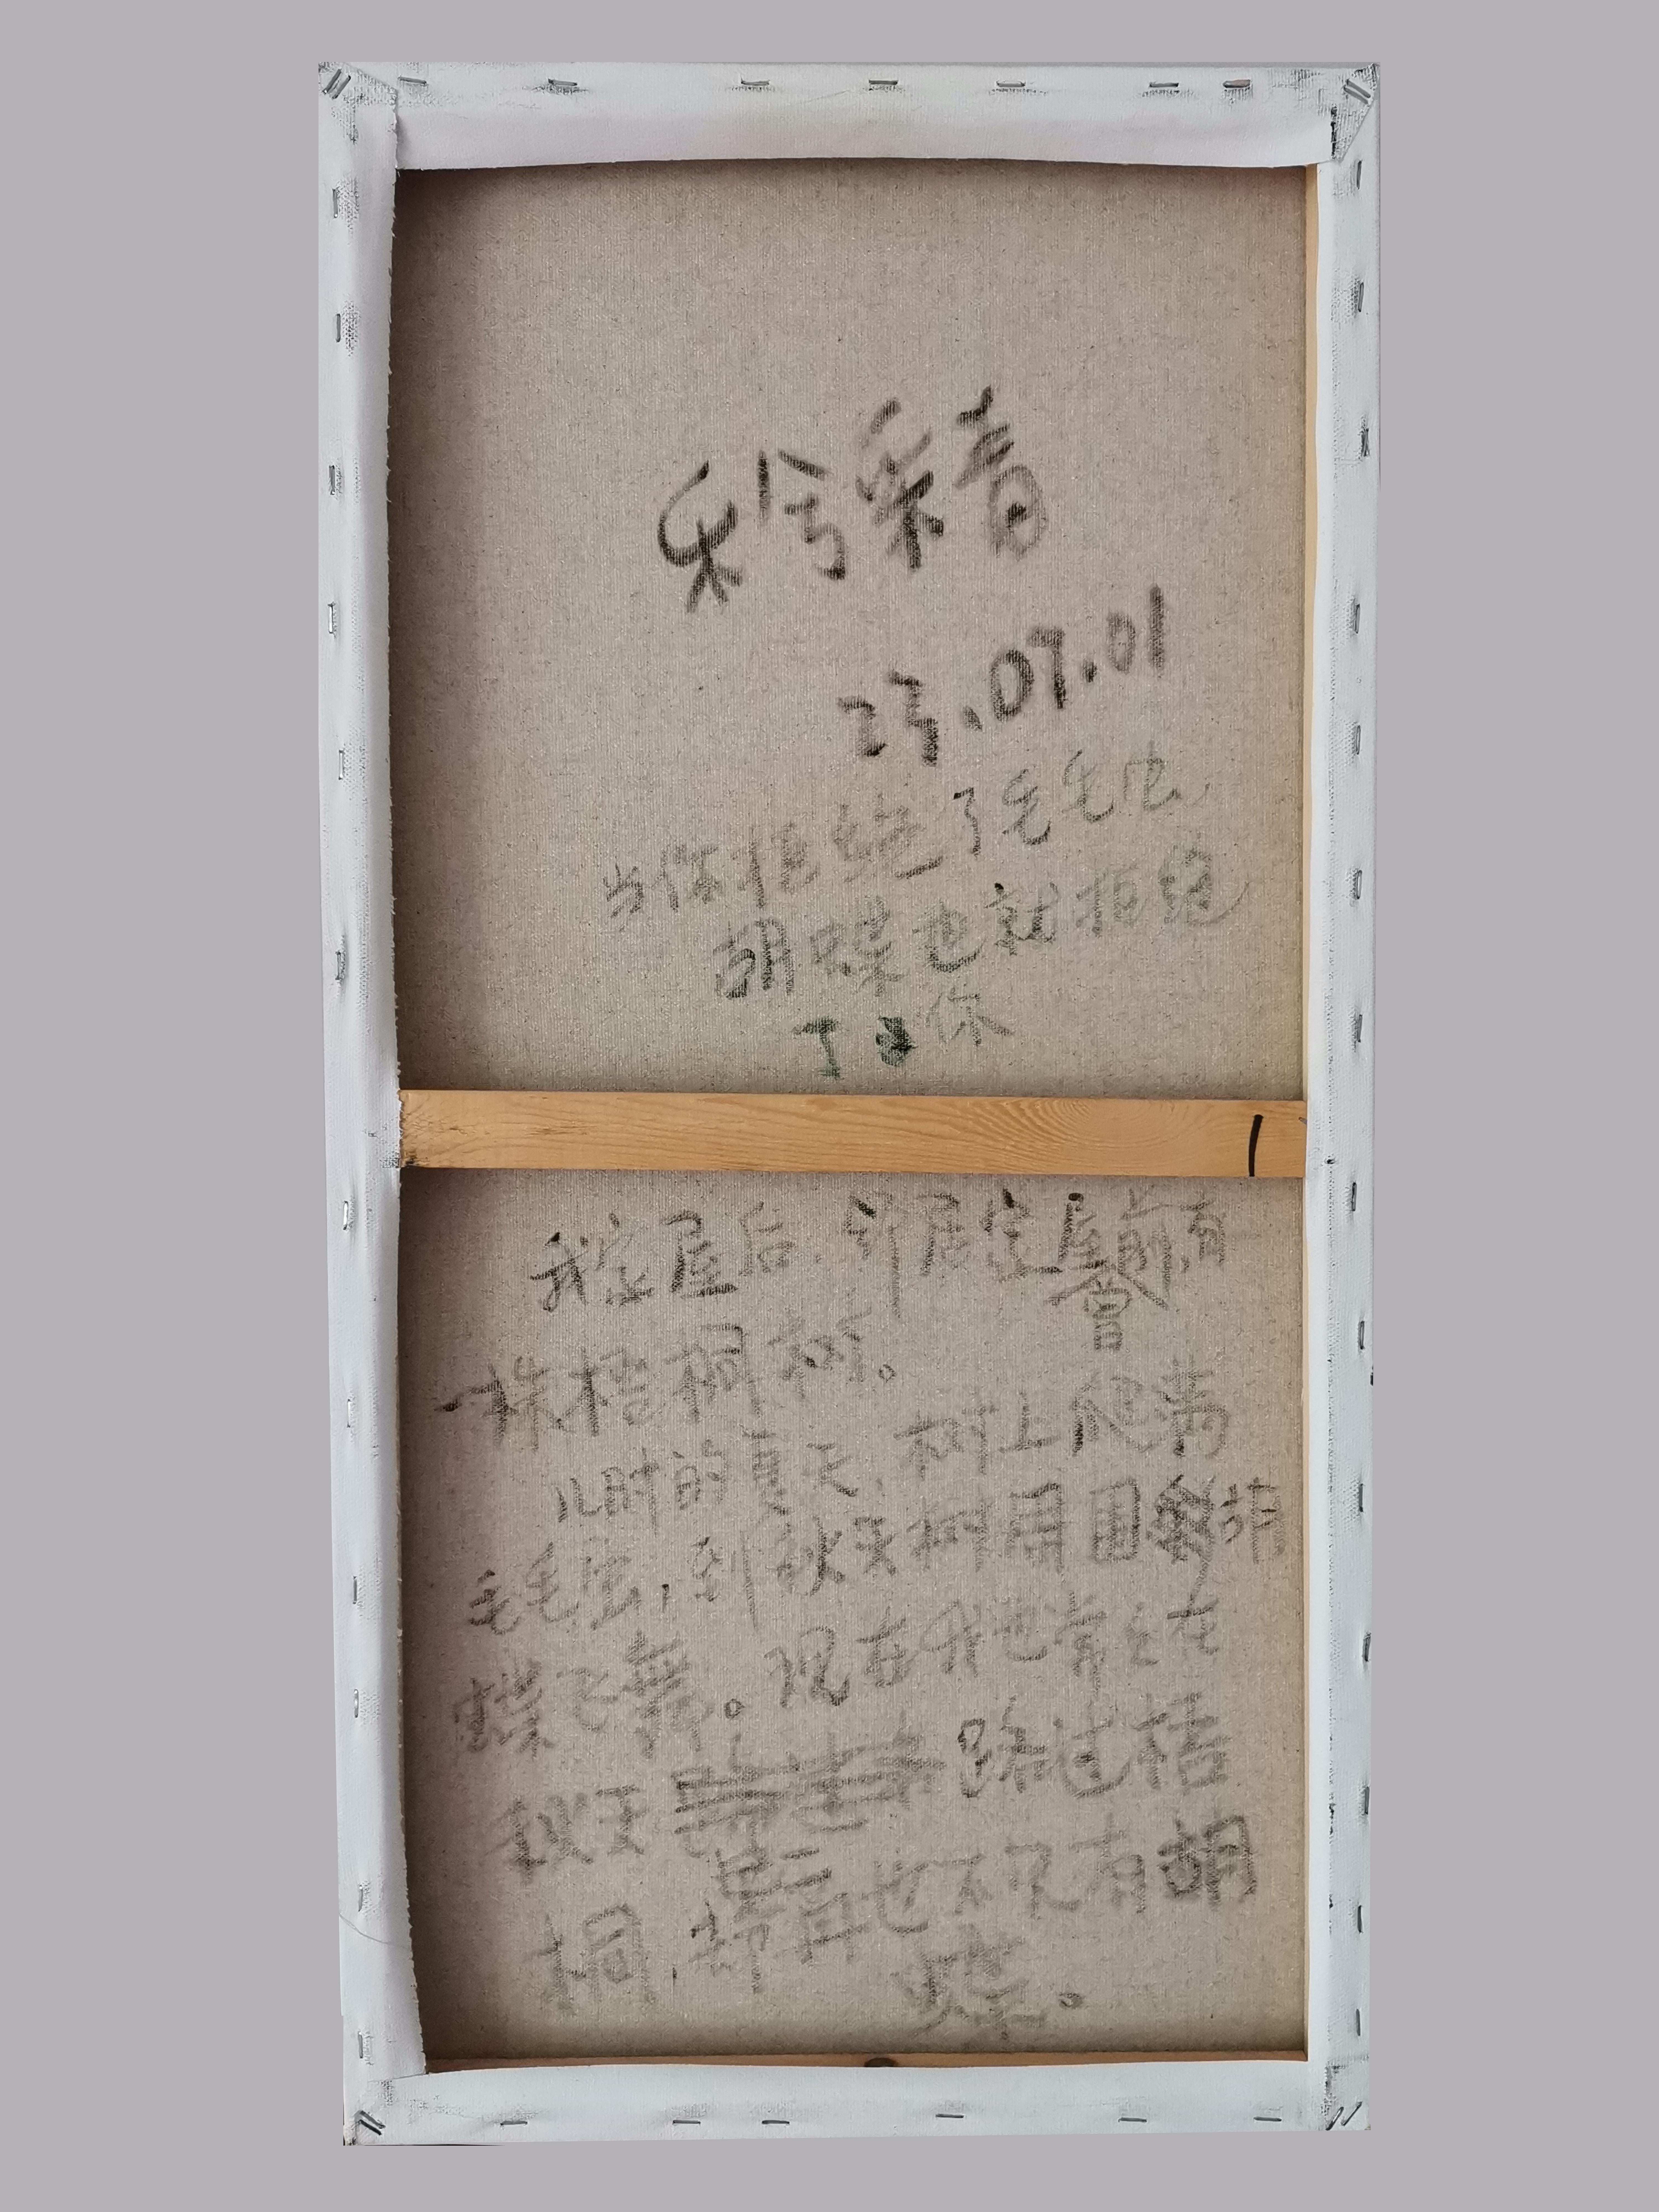 乐兮采音
23.07.01
当你拒绝了毛毛虫
胡蝶也就拒绝
了你
我家屋后,邻居室屋前,有
曾
一株梧桐树。
儿时的夏天,树上爬满
毛毛虫,到秋天树周围
蝶飞舞。现在我也常常在
秋天 踪过梧
桐,却再也不见有胡
蝶。